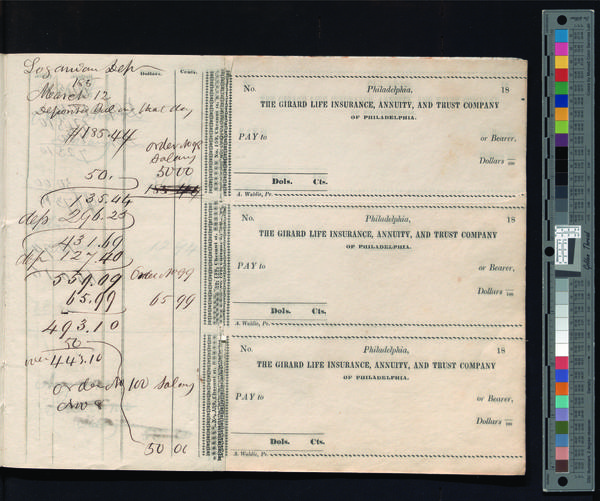 Loganian Dep
Dollars. Cents.
March 12
Deposits Bal in that day
$135.44
order No 98
Salary
50. 50 00
135.44
dep 296.25
431.69
dep 127.40
559.09 Order No 99
65.99 65 99
493.10
50
443.10
order No 100 Salary
50 00
No. Philadelphia, 18
THE GIRARD LIFE INSURANCE, ANNUITY, AND TRUST COMPANY
OF PHILADELPHIA.
PAY to or Bearer,
Dollars /100
Dols. Cts.
A. Waldie, Pr.
No. Philadelphia, 18
THE GIRARD LIFE INSURANCE, ANNUITY, AND TRUST COMPANY
OF PHILADELPHIA.
PAY to or Bearer,
Dollars /100
Dols. Cts.
A. Waldie, Pr.
No. Philadelphia, 18
THE GIRARD LIFE INSURANCE, ANNUITY, AND TRUST COMPANY
OF PHILADELPHIA.
PAY to or Bearer,
Dollars /100
Dols. Cts.
A. Waldie, Pr.